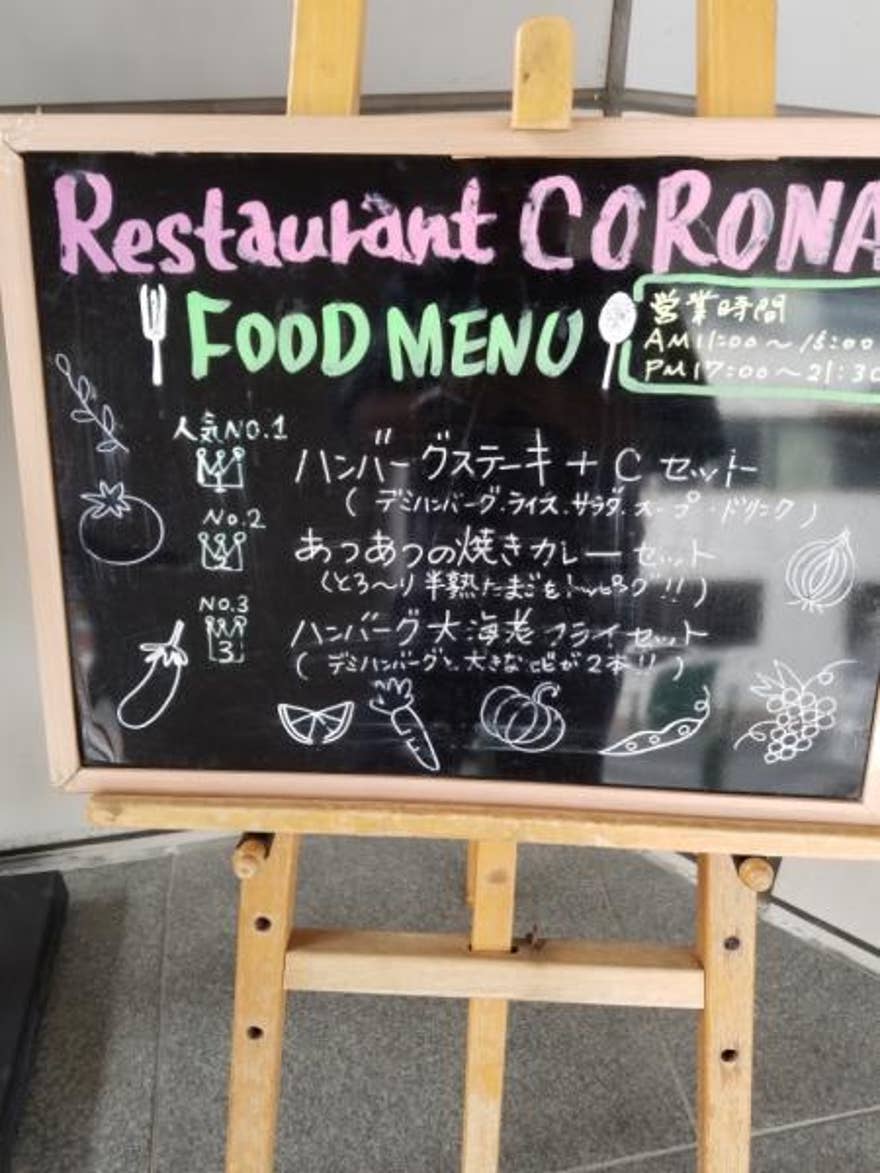 Restaurant CORONA
FOOD MENU
営業時間
AM11:00～15:00
PM17:00～21:30
人気NO.1
1
ハンバーグステーキ+Cセット
(デミハンバーグ.ライス.サラダ.スープ.ドリンク)
No.2
2
あつあつの焼きカレーセット
(とろ～り半熟たまごをトッピング!!)
No.3
3
ハンバーグ大海老フライセット
(デミハンバーグと.大きなエビが2本!!)